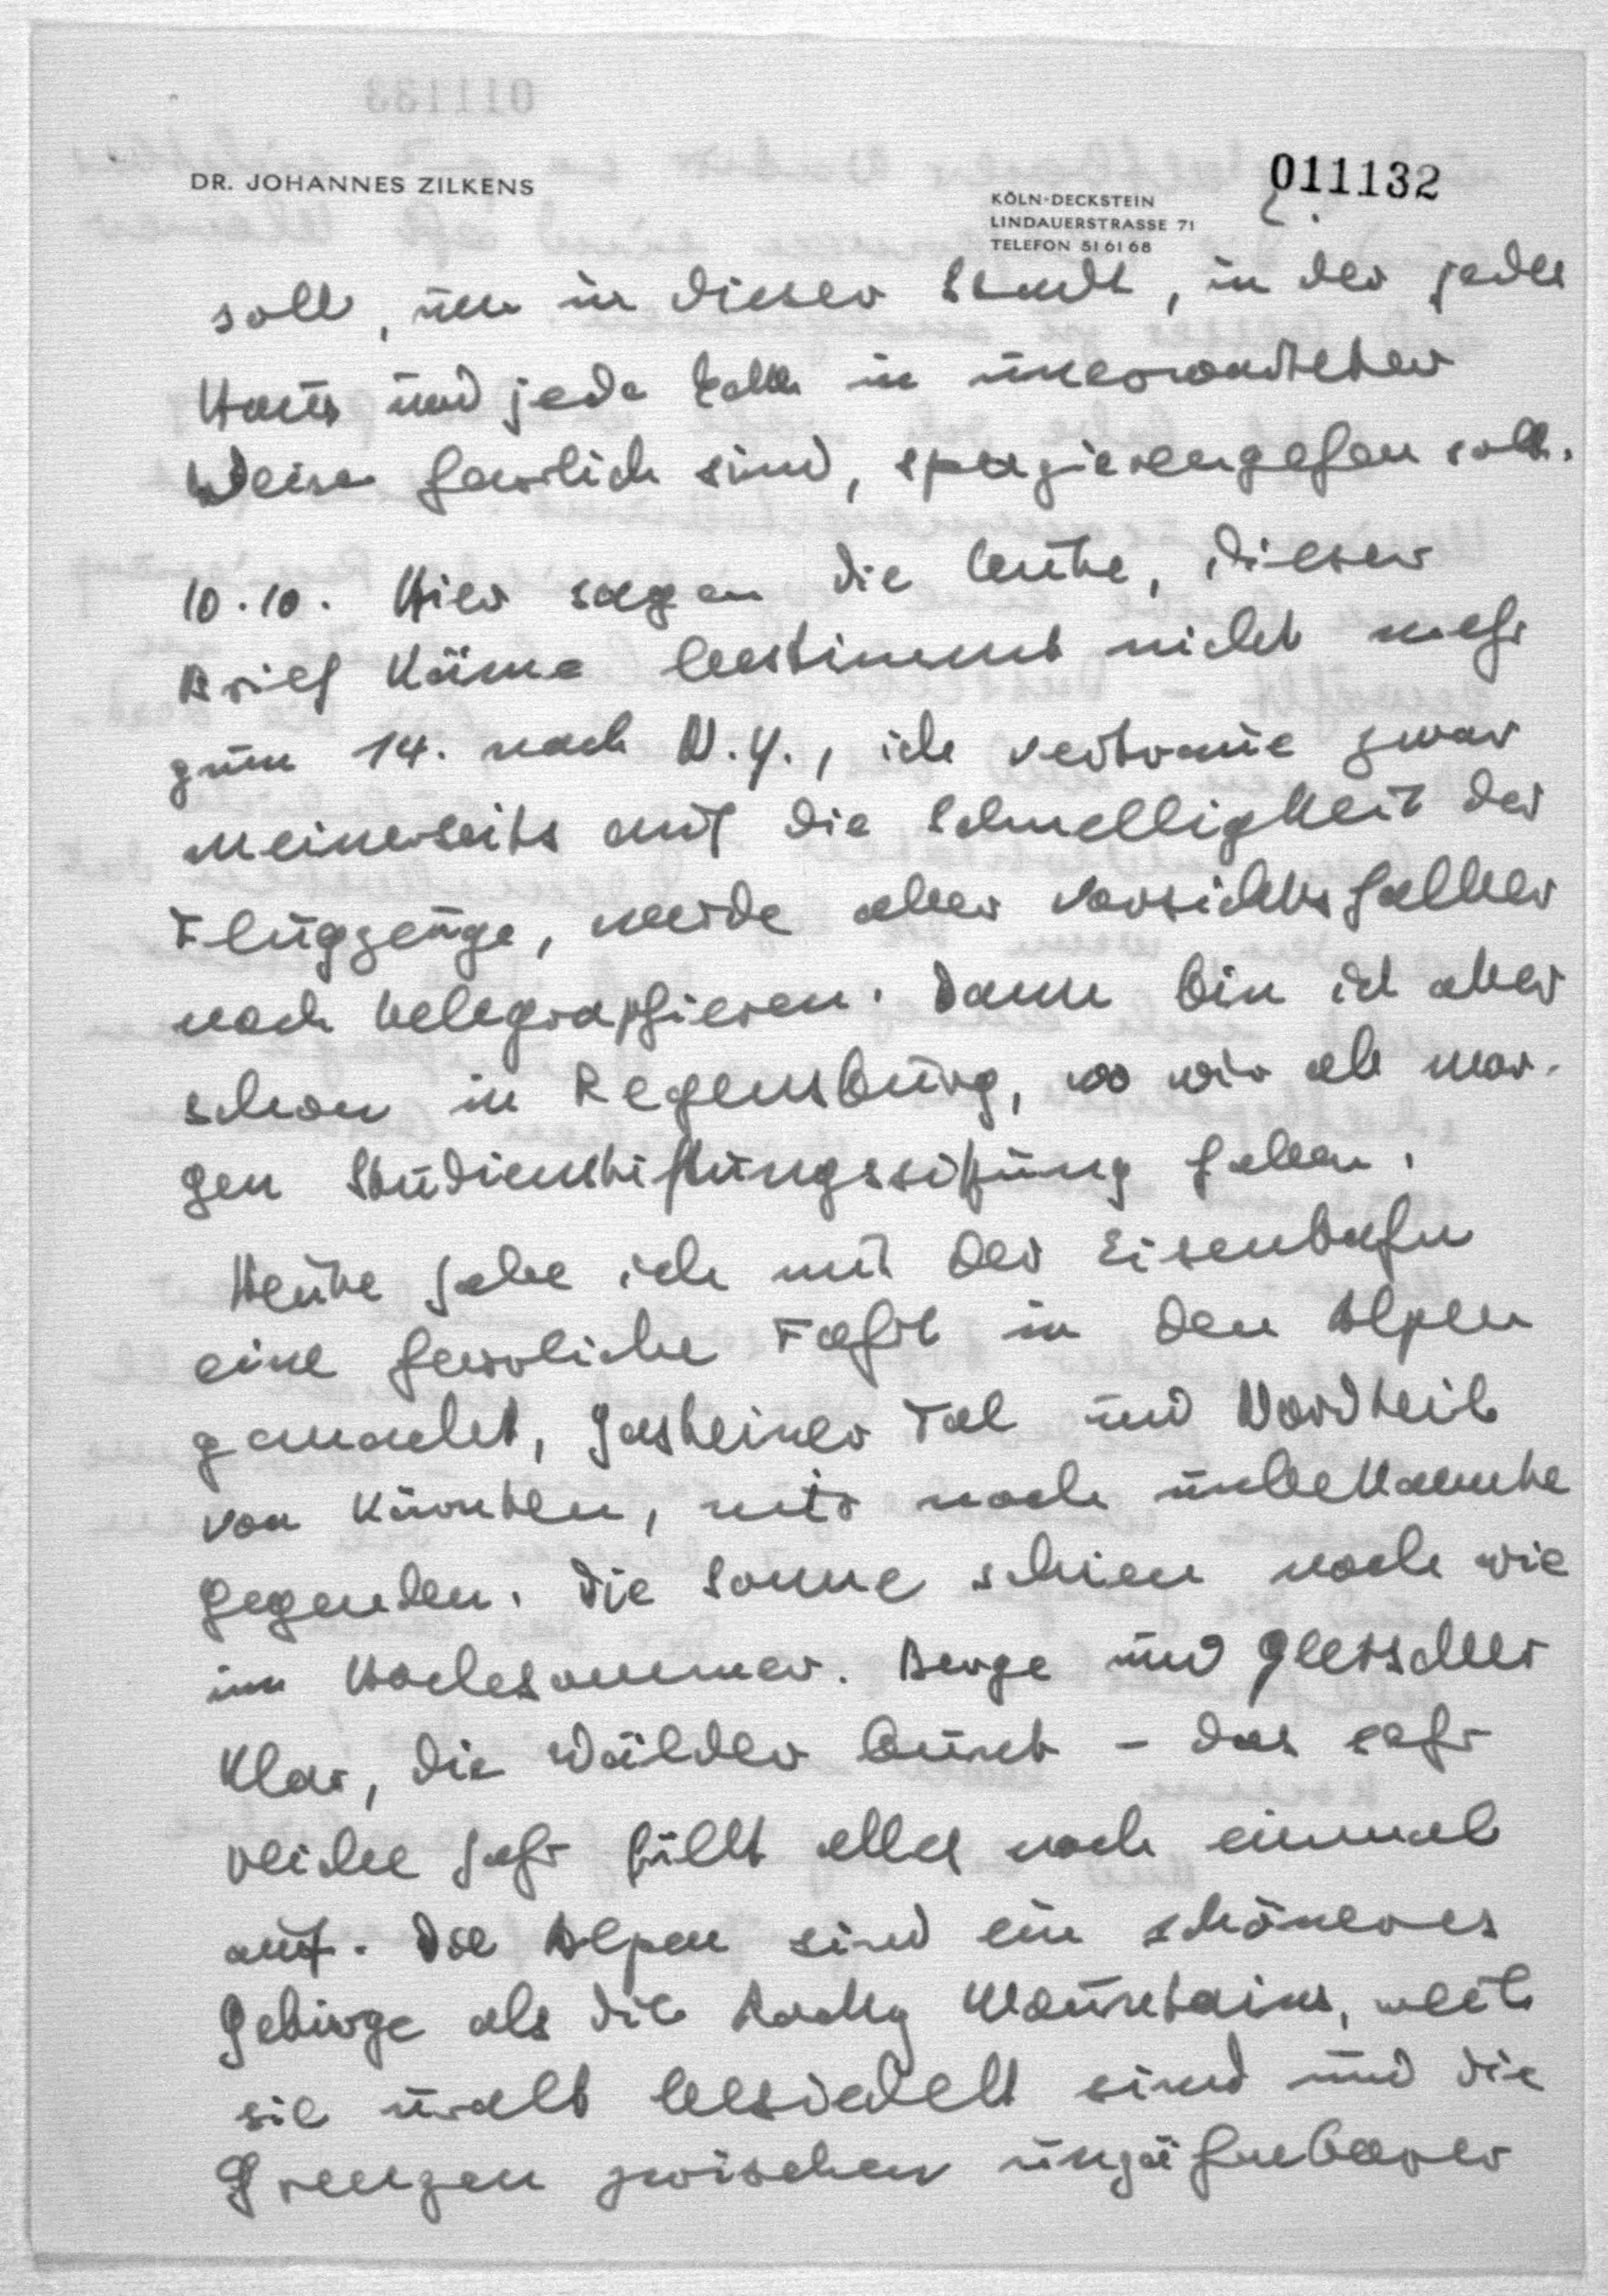 DR. JOHANNES ZILKENS
011132
KÖLN-DECKSTEIN
LINDAUERSTRASSE 71
TELEFON 51 61 68
soll, nur in dieser Stadt, in der jedes
Haus und jede Ecke in unerwarteter
Weise herrlich sind, spazierengehen soll.
10.10. Hier sagen die Leute, dieser
Brief käme bestimmt nicht mehr
zum 14. nach N.Y., ich vertraue zwar
meinerseits auf die Schnelligkeit der
Flugzeuge, werde aber vorsichtshalber
noch telegraphieren. Dann bin ich aber
schon in Regensburg, wo wir ab mor-
gen Studienstiftungssitzung haben.
Heute habe ich mit der Eisenbahn
eine herrliche Fahrt in den Alpen
gemacht, Gasteiner Tal und Nordteil
von Kärnten, mir noch unbekannte
Gegenden. Die Sonne schien noch wie
im Hochsommer. Berge und Gletscher
klar, die Wälder bunt – das sehr
reiche Jahr füllt alles noch einmal
auf. Die Alpen sind ein schöneres
Gebirge als die Rocky Mountains, weil
sie uralt besiedelt sind und die
Grenzen zwischen unzähmbarer